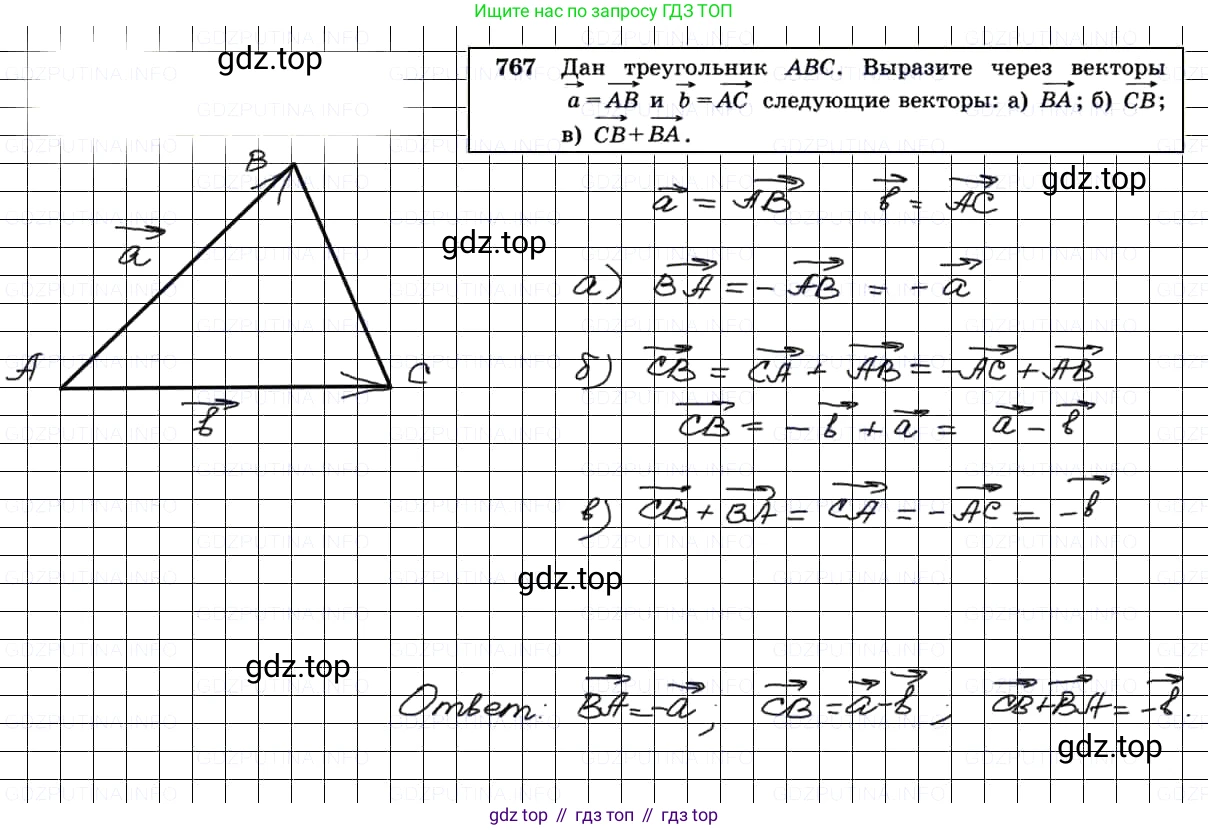 Ищите нас по запросу ГДЗ ТОП
gdz.top
767 Дан треугольник ABC. Выразите через векторы
a⃗ = AB⃗ и b⃗ = AC⃗ следующие векторы: а) BA⃗; б) CB⃗;
в) CB⃗ + BA⃗.
B
a⃗
A
C
b⃗
a⃗ = AB⃗ b⃗ = AC⃗
gdz.top
gdz.top
а) BA⃗ = - AB⃗ = - a⃗
б) CB⃗ = CA⃗ + AB⃗ = -AC⃗ + AB⃗
CB⃗ = - b⃗ + a⃗ = a⃗ - b⃗
в) CB⃗ + BA⃗ = CA⃗ = -AC⃗ = -b⃗
gdz.top
gdz.top
Ответ: BA⃗ = -a⃗; CB⃗ = a⃗ - b⃗; CB⃗ + BA⃗ = -b⃗.
gdz.top
gdz топ // гдз топ // гдз top